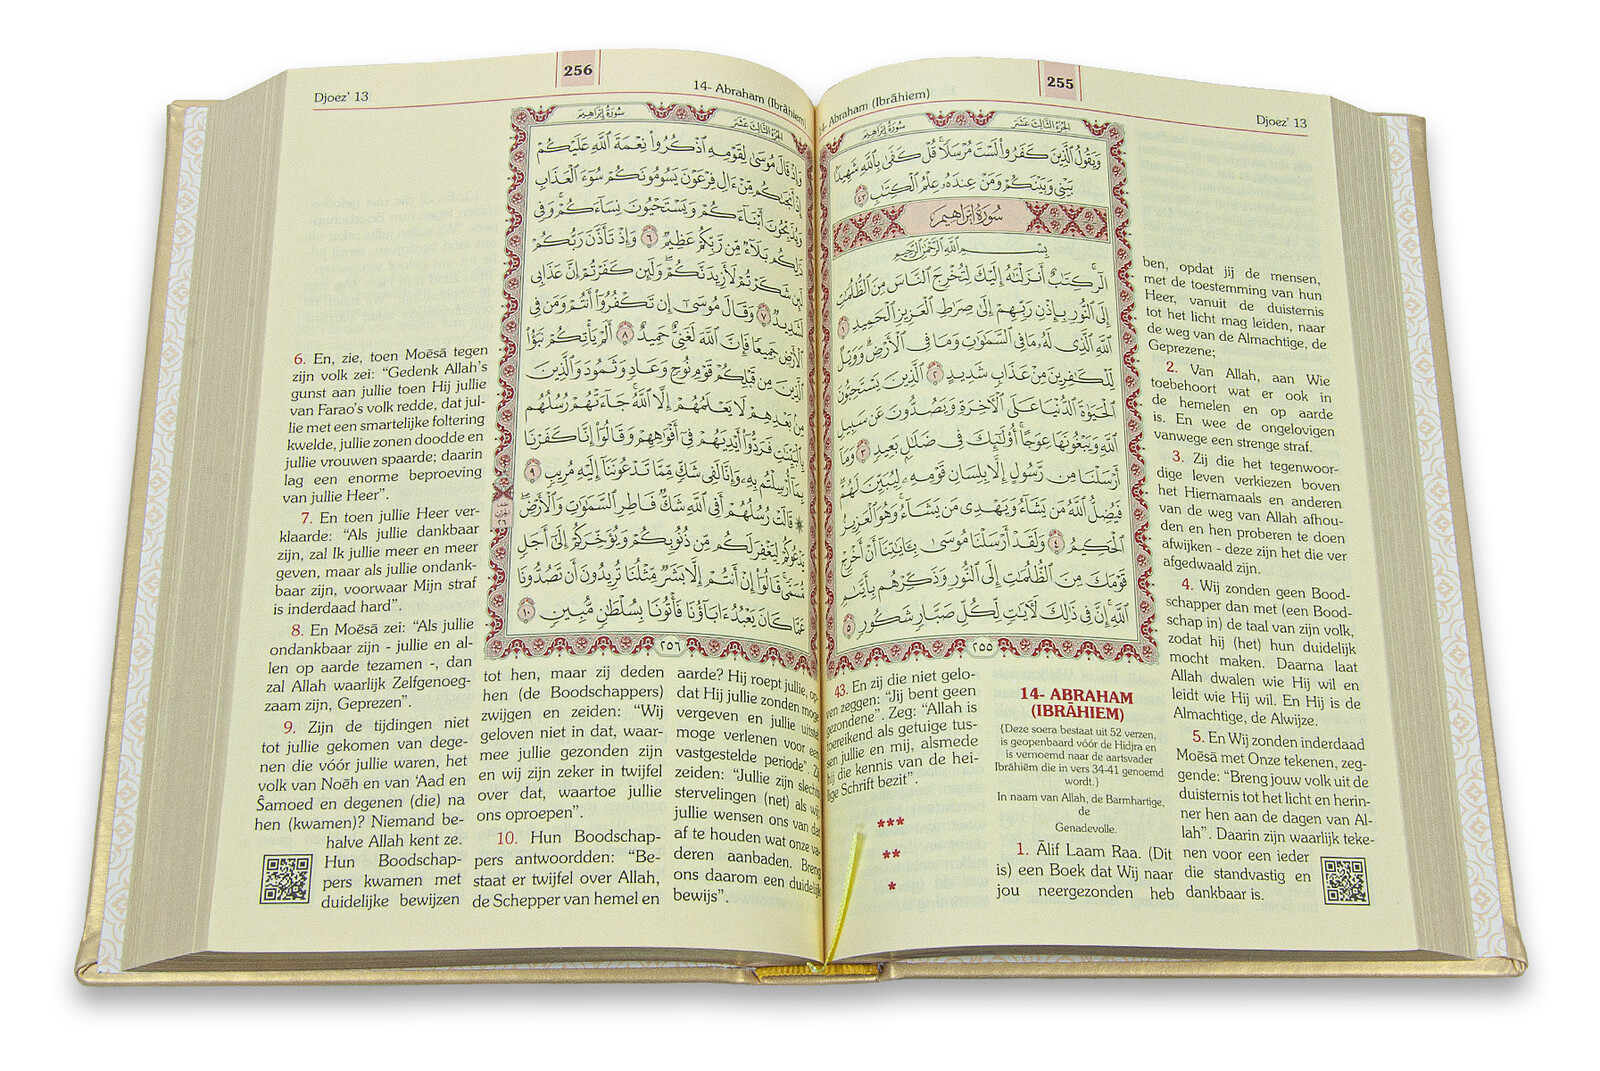 255
14- Abraham (Ibrāhiem)
Djoez’ 13
سُورَةُ إِبْرَاهِيمَ
الجُزْءُ الثَّالِثَ عَشَرَ
وَيَقُولُ ٱلَّذِينَ كَفَرُوا۟ لَسْتَ مُرْسَلًا ۚ قُلْ كَفَىٰ بِٱللَّهِ شَهِيدًۢا
بَيْنِى وَبَيْنَكُمْ وَمَنْ عِندَهُۥ عِلْمُ ٱلْكِتَٰبِ ٤٣
سُورَةُ إِبْرَاهِيمَ
بِسْمِ ٱللَّهِ ٱلرَّحْمَٰنِ ٱلرَّحِيمِ
الٓر ۚ كِتَٰبٌ أَنزَلْنَٰهُ إِلَيْكَ لِتُخْرِجَ ٱلنَّاسَ مِنَ ٱلظُّلُمَٰتِ
إِلَى ٱلنُّورِ بِإِذْنِ رَبِّهِمْ إِلَىٰ صِرَٰطِ ٱلْعَزِيزِ ٱلْحَمِيدِ ١
ٱللَّهِ ٱلَّذِى لَهُۥ مَا فِى ٱلسَّمَٰوَٰتِ وَمَا فِى ٱلْأَرْضِ ۗ وَوَيْلٌ
لِّلْكَٰفِرِينَ مِنْ عَذَابٍ شَدِيدٍ ٢ ٱلَّذِينَ يَسْتَحِبُّونَ
ٱلْحَيَوٰةَ ٱلدُّنْيَا عَلَى ٱلْءَاخِرَةِ وَيَصُدُّونَ عَن سَبِيلِ
ٱللَّهِ وَيَبْغُونَهَا عِوَجًا ۚ أُو۟لَٰٓئِكَ فِى ضَلَٰلٍۭ بَعِيدٍ ٣ وَمَآ
أَرْسَلْنَا مِن رَّسُولٍ إِلَّا بِلِسَانِ قَوْمِهِۦ لِيُبَيِّنَ لَهُمْ ۖ
فَيُضِلُّ ٱللَّهُ مَن يَشَآءُ وَيَهْدِى مَن يَشَآءُ ۚ وَهُوَ ٱلْعَزِيزُ
ٱلْحَكِيمُ ٤ وَلَقَدْ أَرْسَلْنَا مُوسَىٰ بِـَٔايَٰتِنَآ أَنْ أَخْرِجْ
قَوْمَكَ مِنَ ٱلظُّلُمَٰتِ إِلَى ٱلنُّورِ وَذَكِّرْهُم بِأَيَّىٰمِ
ٱللَّهِ ۚ إِنَّ فِى ذَٰلِكَ لَءَايَٰتٍ لِّكُلِّ صَبَّارٍ شَكُورٍ ٥
٢٥٥
43. En zij die niet gelo-
ven zeggen: “Jij bent geen
gezondene”. Zeg: “Allah is
toereikend als getuige tus-
sen jullie en mij, alsmede
hij die kennis van de hei-
lige Schrift bezit”.
***
**
*
14- ABRAHAM
(IBRĀHIEM)
{Deze soera bestaat uit 52 verzen,
is geopenbaard vóór de Hidjra en
is vernoemd naar de aartsvader
Ibrāhiēm die in vers 34-41 genoemd
wordt.}
In naam van Allah, de Barmhartige,
de
Genadevolle.
1. Ālif Laam Raa. (Dit
is) een Boek dat Wij naar
jou neergezonden heb
ben, opdat jij de mensen,
met de toestemming van hun
Heer, vanuit de duisternis
tot het licht mag leiden, naar
de weg van de Almachtige, de
Geprezene;
2. Van Allah, aan Wie
toebehoort wat er ook in
de hemelen en op aarde
is. En wee de ongelovigen
vanwege een strenge straf.
3. Zij die het tegenwoor-
dige leven verkiezen boven
het Hiernamaals en anderen
van de weg van Allah afhou-
den en hen proberen te doen
afwijken - deze zijn het die ver
afgedwaald zijn.
4. Wij zonden geen Bood-
schapper dan met (een Bood-
schap in) de taal van zijn volk,
zodat hij (het) hun duidelijk
mocht maken. Daarna laat
Allah dwalen wie Hij wil en
leidt wie Hij wil. En Hij is de
Almachtige, de Alwijze.
5. En Wij zonden inderdaad
Moēsā met Onze tekenen, zeg-
gende: “Breng jouw volk uit de
duisternis tot het licht en herin-
ner hen aan de dagen van Al-
lah”. Daarin zijn waarlijk teke-
nen voor een ieder
die standvastig en
dankbaar is.
Djoez’ 13
256
14- Abraham (Ibrāhiem)
سُورَةُ إِبْرَاهِيمَ
الجُزْءُ الثَّالِثَ عَشَرَ
وَإِذْ قَالَ مُوسَىٰ لِقَوْمِهِ ٱذْكُرُوا۟ نِعْمَةَ ٱللَّهِ عَلَيْكُمْ
إِذْ أَنجَىٰكُم مِّنْ ءَالِ فِرْعَوْنَ يَسُومُونَكُمْ سُوٓءَ ٱلْعَذَابِ
وَيُذَبِّحُونَ أَبْنَآءَكُمْ وَيَسْتَحْيُونَ نِسَآءَكُمْ ۚ وَفِى
ذَٰلِكُم بَلَآءٌ مِّن رَّبِّكُمْ عَظِيمٌ ٦ وَإِذْ تَأَذَّنَ رَبُّكُمْ
لَئِن شَكَرْتُمْ لَأَزِيدَنَّكُمْ ۖ وَلَئِن كَفَرْتُمْ إِنَّ عَذَابِى
لَشَدِيدٌ ٧ وَقَالَ مُوسَىٰٓ إِن تَكْفُرُوٓا۟ أَنتُمْ وَمَن فِى
ٱلْأَرْضِ جَمِيعًا فَإِنَّ ٱللَّهَ لَغَنِىٌّ حَمِيدٌ ٨ أَلَمْ يَأْتِكُمْ نَبَؤُا۟
ٱلَّذِينَ مِن قَبْلِكُمْ قَوْمِ نُوحٍ وَعَادٍ وَثَمُودَ ۛ وَٱلَّذِينَ
مِنۢ بَعْدِهِمْ ۛ لَا يَعْلَمُهُمْ إِلَّا ٱللَّهُ ۚ جَآءَتْهُمْ رُسُلُهُم
بِٱلْبَيِّنَٰتِ فَرَدُّوٓا۟ أَيْدِيَهُمْ فِىٓ أَفْوَٰهِهِمْ وَقَالُوٓا۟ إِنَّا كَفَرْنَا
بِمَآ أُرْسِلْتُم بِهِۦ وَإِنَّا لَفِى شَكٍّ مِّمَّا تَدْعُونَنَآ إِلَيْهِ مُرِيبٍ ٩
۞ قَالَتْ رُسُلُهُمْ أَفِى ٱللَّهِ شَكٌّ فَاطِرِ ٱلسَّمَٰوَٰتِ وَٱلْأَرْضِ ۖ
يَدْعُوكُمْ لِيَغْفِرَ لَكُم مِّن ذُنُوبِكُمْ وَيُؤَخِّرَكُمْ إِلَىٰٓ أَجَلٍ
مُّسَمًّى ۚ قَالُوٓا۟ إِنْ أَنتُمْ إِلَّا بَشَرٌ مِّثْلُنَا تُرِيدُونَ أَن تَصُدُّونَا
عَمَّا كَانَ يَعْبُدُ ءَابَآؤُنَا فَأْتُونَا بِسُلْطَٰنٍ مُّبِينٍ ١٠
٢٥٦
6. En, zie, toen Moēsā tegen
zijn volk zei: “Gedenk Allah’s
gunst aan jullie toen Hij jullie
van Farao’s volk redde, dat jul-
lie met een smartelijke foltering
kwelde, jullie zonen doodde en
jullie vrouwen spaarde; daarin
lag een enorme beproeving
van jullie Heer”.
7. En toen jullie Heer ver-
klaarde: “Als jullie dankbaar
zijn, zal Ik jullie meer en meer
geven, maar als jullie ondank-
baar zijn, voorwaar Mijn straf
is inderdaad hard”.
8. En Moēsā zei: “Als jullie
ondankbaar zijn - jullie en al-
len op aarde tezamen -, dan
zal Allah waarlijk Zelfgenoeg-
zaam zijn, Geprezen”.
9. Zijn de tijdingen niet
tot jullie gekomen van dege-
nen die vóór jullie waren, het
volk van Noēh en van ‘Aad en
Ŝamoed en degenen (die) na
hen (kwamen)? Niemand be-
halve Allah kent ze.
Hun Boodschap-
pers kwamen met
duidelijke bewijzen
tot hen, maar zij deden
hen (de Boodschappers)
zwijgen en zeiden: “Wij
geloven niet in dat, waar-
mee jullie gezonden zijn
en wij zijn zeker in twijfel
over dat, waartoe jullie
ons oproepen”.
10. Hun Boodschap-
pers antwoordden: “Be-
staat er twijfel over Allah,
de Schepper van hemel en
aarde? Hij roept jullie, op-
dat Hij jullie zonden moge
vergeven en jullie uitstel
moge verlenen voor een
vastgestelde periode”. Zij
zeiden: “Jullie zijn slechts
stervelingen (net) als wij,
jullie wensen ons van dat
af te houden wat onze va-
deren aanbaden. Breng
ons daarom een duidelijk
bewijs”.